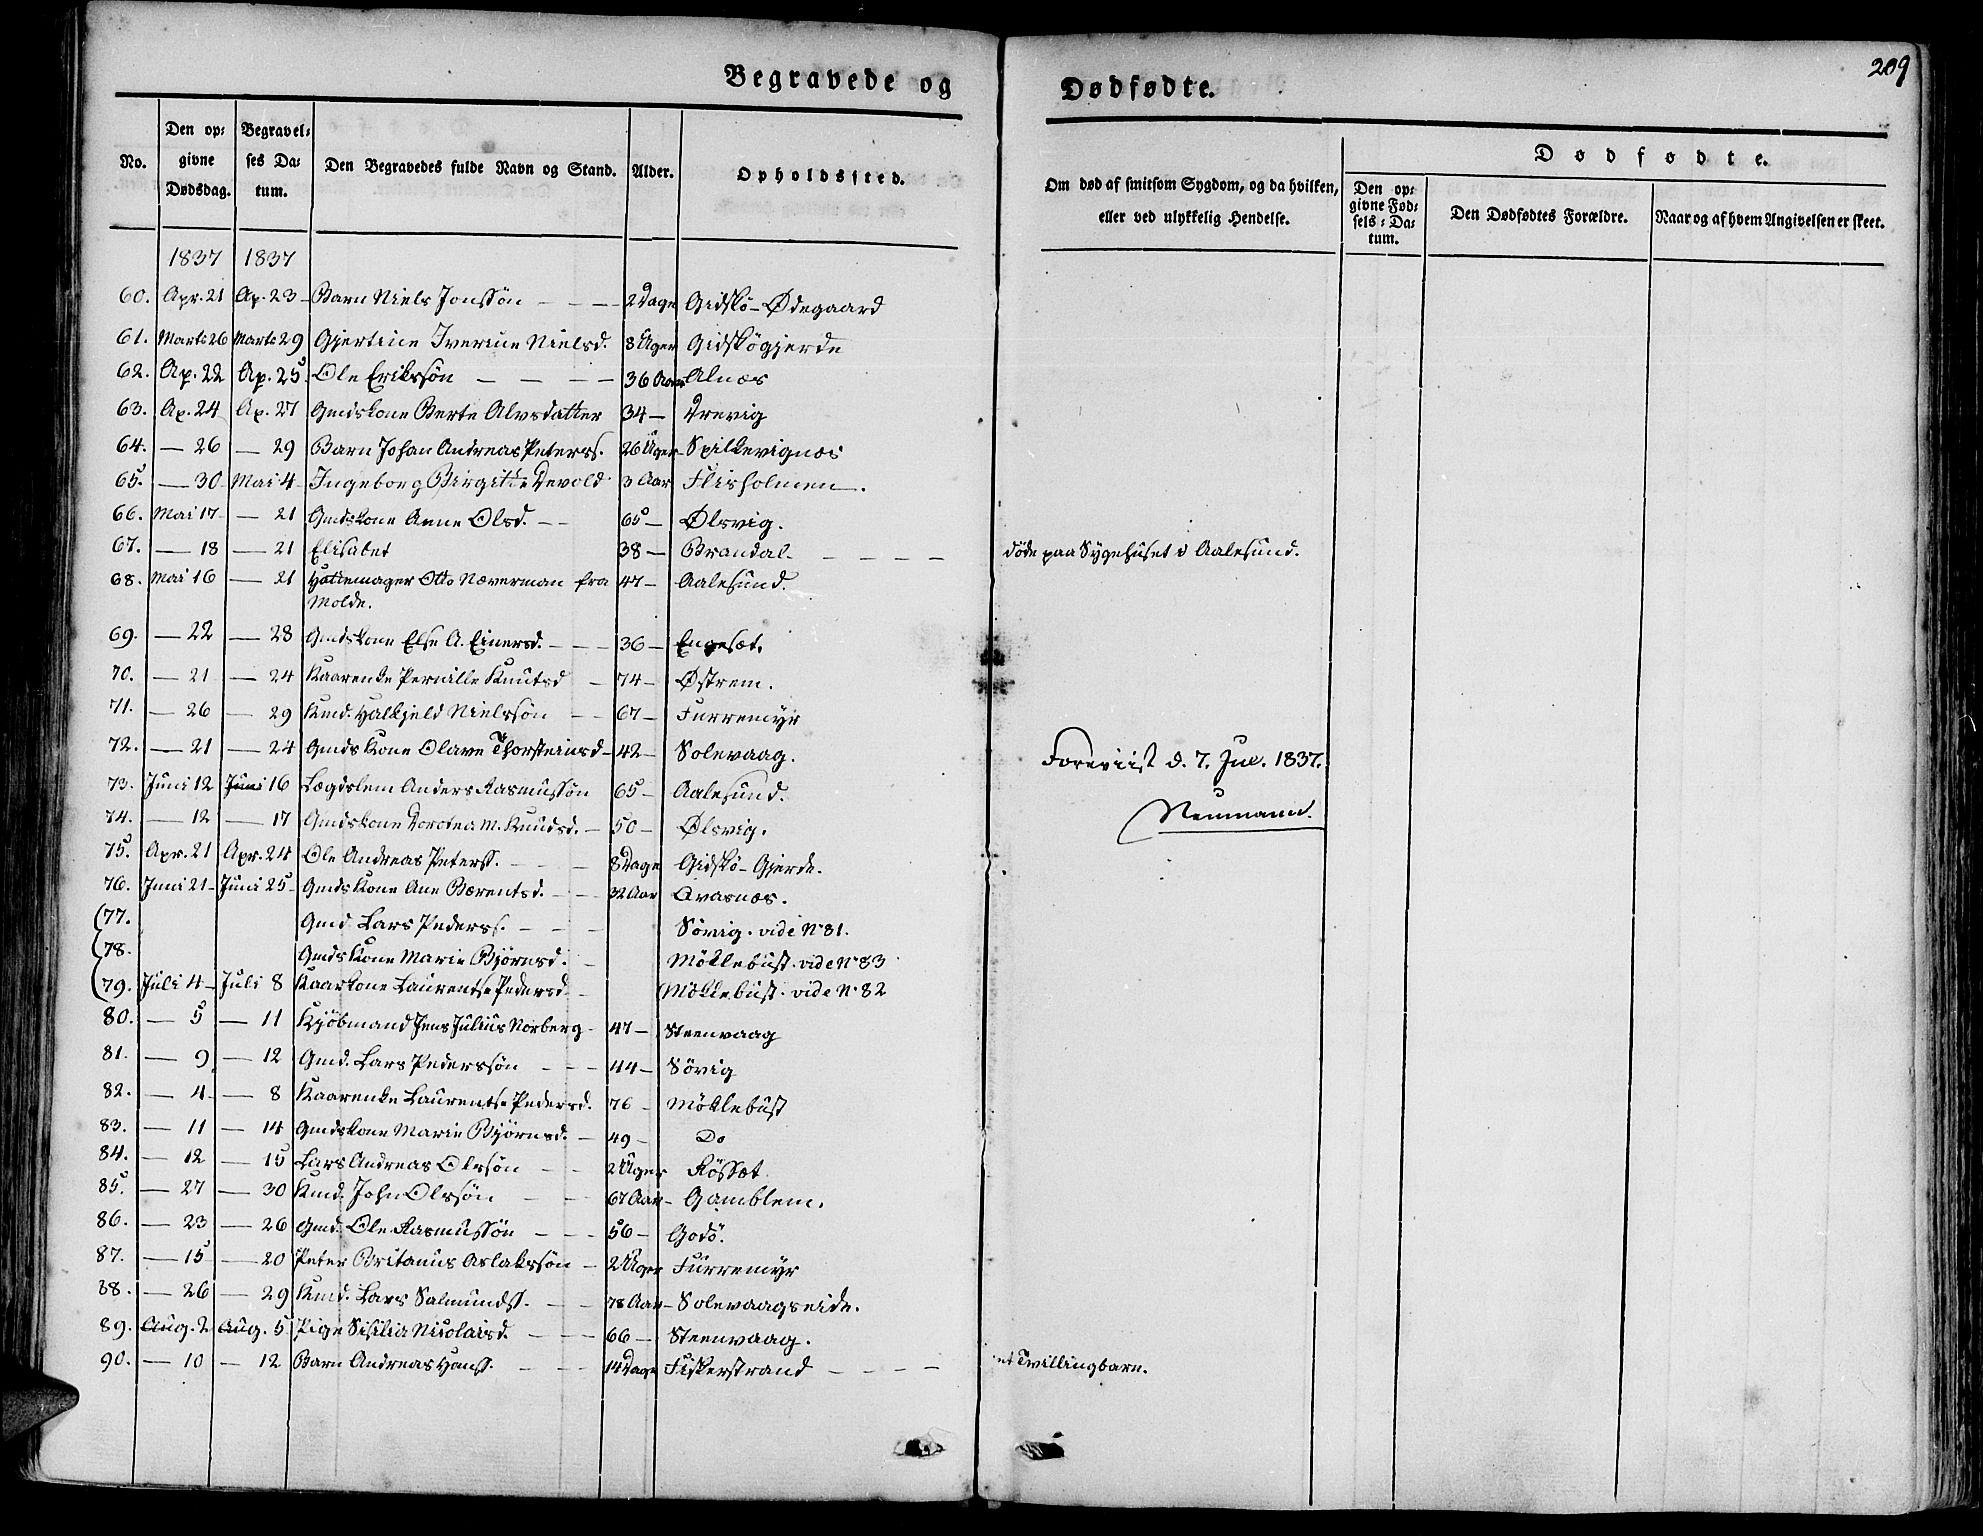 209
Begravede og Dødfødte.
No. Den op: givne Dødsdag. Begravel: ses Da: tum. Den Begravedes fulde Navn og Stand. Alder. Opholdssted.
Om død af smitsom Sygdom, og da hvilken, eller ved ulykkelig Hendelse.
Dødfødte.
Den op: givne Fød: sels: Da: tum. Den Dødfødtes Forældre. Naar og af hvem Angivelsen er skeet.
1837 1837
60. Apr. 21 Ap. 23 Barn Niels Jonssön 2 Dage Gidskö-Ødegaard
61. Marts 26 Marts 29 Gjertine Iverine Nielsd. 8 Uger Gidskögjerde
62. Ap. 22 Ap. 25 Ole Erikssön 36 Aar Alnæs
63. Ap. 24 Ap. 27 Gmdskone Berte Alvsdatter 34 - Drevig
64. - 26 - 29 Barn Johan Andreas Peterss. 26 Uger Spilkevignæs
65. - 30 Mai 4 Ingeborg Birgitte Devold 3 Aar Flisholmen.
66. Mai 17 - 21 Gmdskone Anne Olsd. 65 - Ølsvig.
67. - 18 - 21 Elisabet 38 - Brandal - døde paa Sygehuset i Aalesund.
68. Mai 16 - 21 Hattemager Otto Næverman fra 47 - Aalesund.
Molde.
69. - 22 - 28 Gmdskone Else A. Einersd. 36 - Engesæt.
70. - 21 - 24 Kaarenke Pernille Knutsd 74 - Østrem.
71. - 26 - 29 Kmd. Halkjeld Nielssön 67 - Furremyr
72. - 21 - 24 Gmds Kone Olave Thorsteinsd 42 - Solevaag.
Foreviist d. 7. Jul. 1837.
73. Juni 12 Juni 16 Lægdslem Anders Rasmussön 65 - Aalesund.
Neumann.
74. - 12 - 17 Gmdskone Dorotea M. Knudsd. 50 - Ølsvig.
75. Apr. 21 Apr. 24 Ole Andreas Peterss. 8 Dage Gidskö-Gjerde.
76. Juni 21 Juni 25 Gmds Kone Ane Bærentsd. 32 Aar Qvasnæs.
(77. Gmd. Lars Pederss. Sövig. vide No 81.
(78. Gmds Kone Marie Bjørnsd. Möklebust. vide No 83
(79. Juli 4 Juli 8 Kaarkone Laurentse Pedersd. Möklebust. vide No 82
80. - 5 - 11 Kjöbmand Jens Julius Norberg 47 - Steenvaag
81. - 9 - 12 Gmd. Lars Pederssön 44 - Sövig
82. - 4 - 8 Kaarenke Laurentse Pedersd. 76 - Möklebust
83. - 11 - 14 Gmdskone Marie Bjørnsd. 49 - Do
84. - 12 - 15 Lars Andreas Olssön 2 Uger Rössæt
85. - 27 - 30 Kmd. John Olssön 67 Aar Gamblem.
86. - 23 - 26 Gmd. Ole Rasmussön 56 - Godö.
87. - 15 - 20 Peter Britanus Aslakssön 2 Uger Furremyr
88. - 26 - 29 Kmd. Lars Salmundss. 78 Aar Solevaagseide.
89. Aug. 2 Aug. 5 Pige Sisilia Nicolaisd. 66 - Steenvaag.
90. - 10 - 12 Barn Andreas Hanss. 14 Dage Fiskerstrand - et Tvillingbarn.